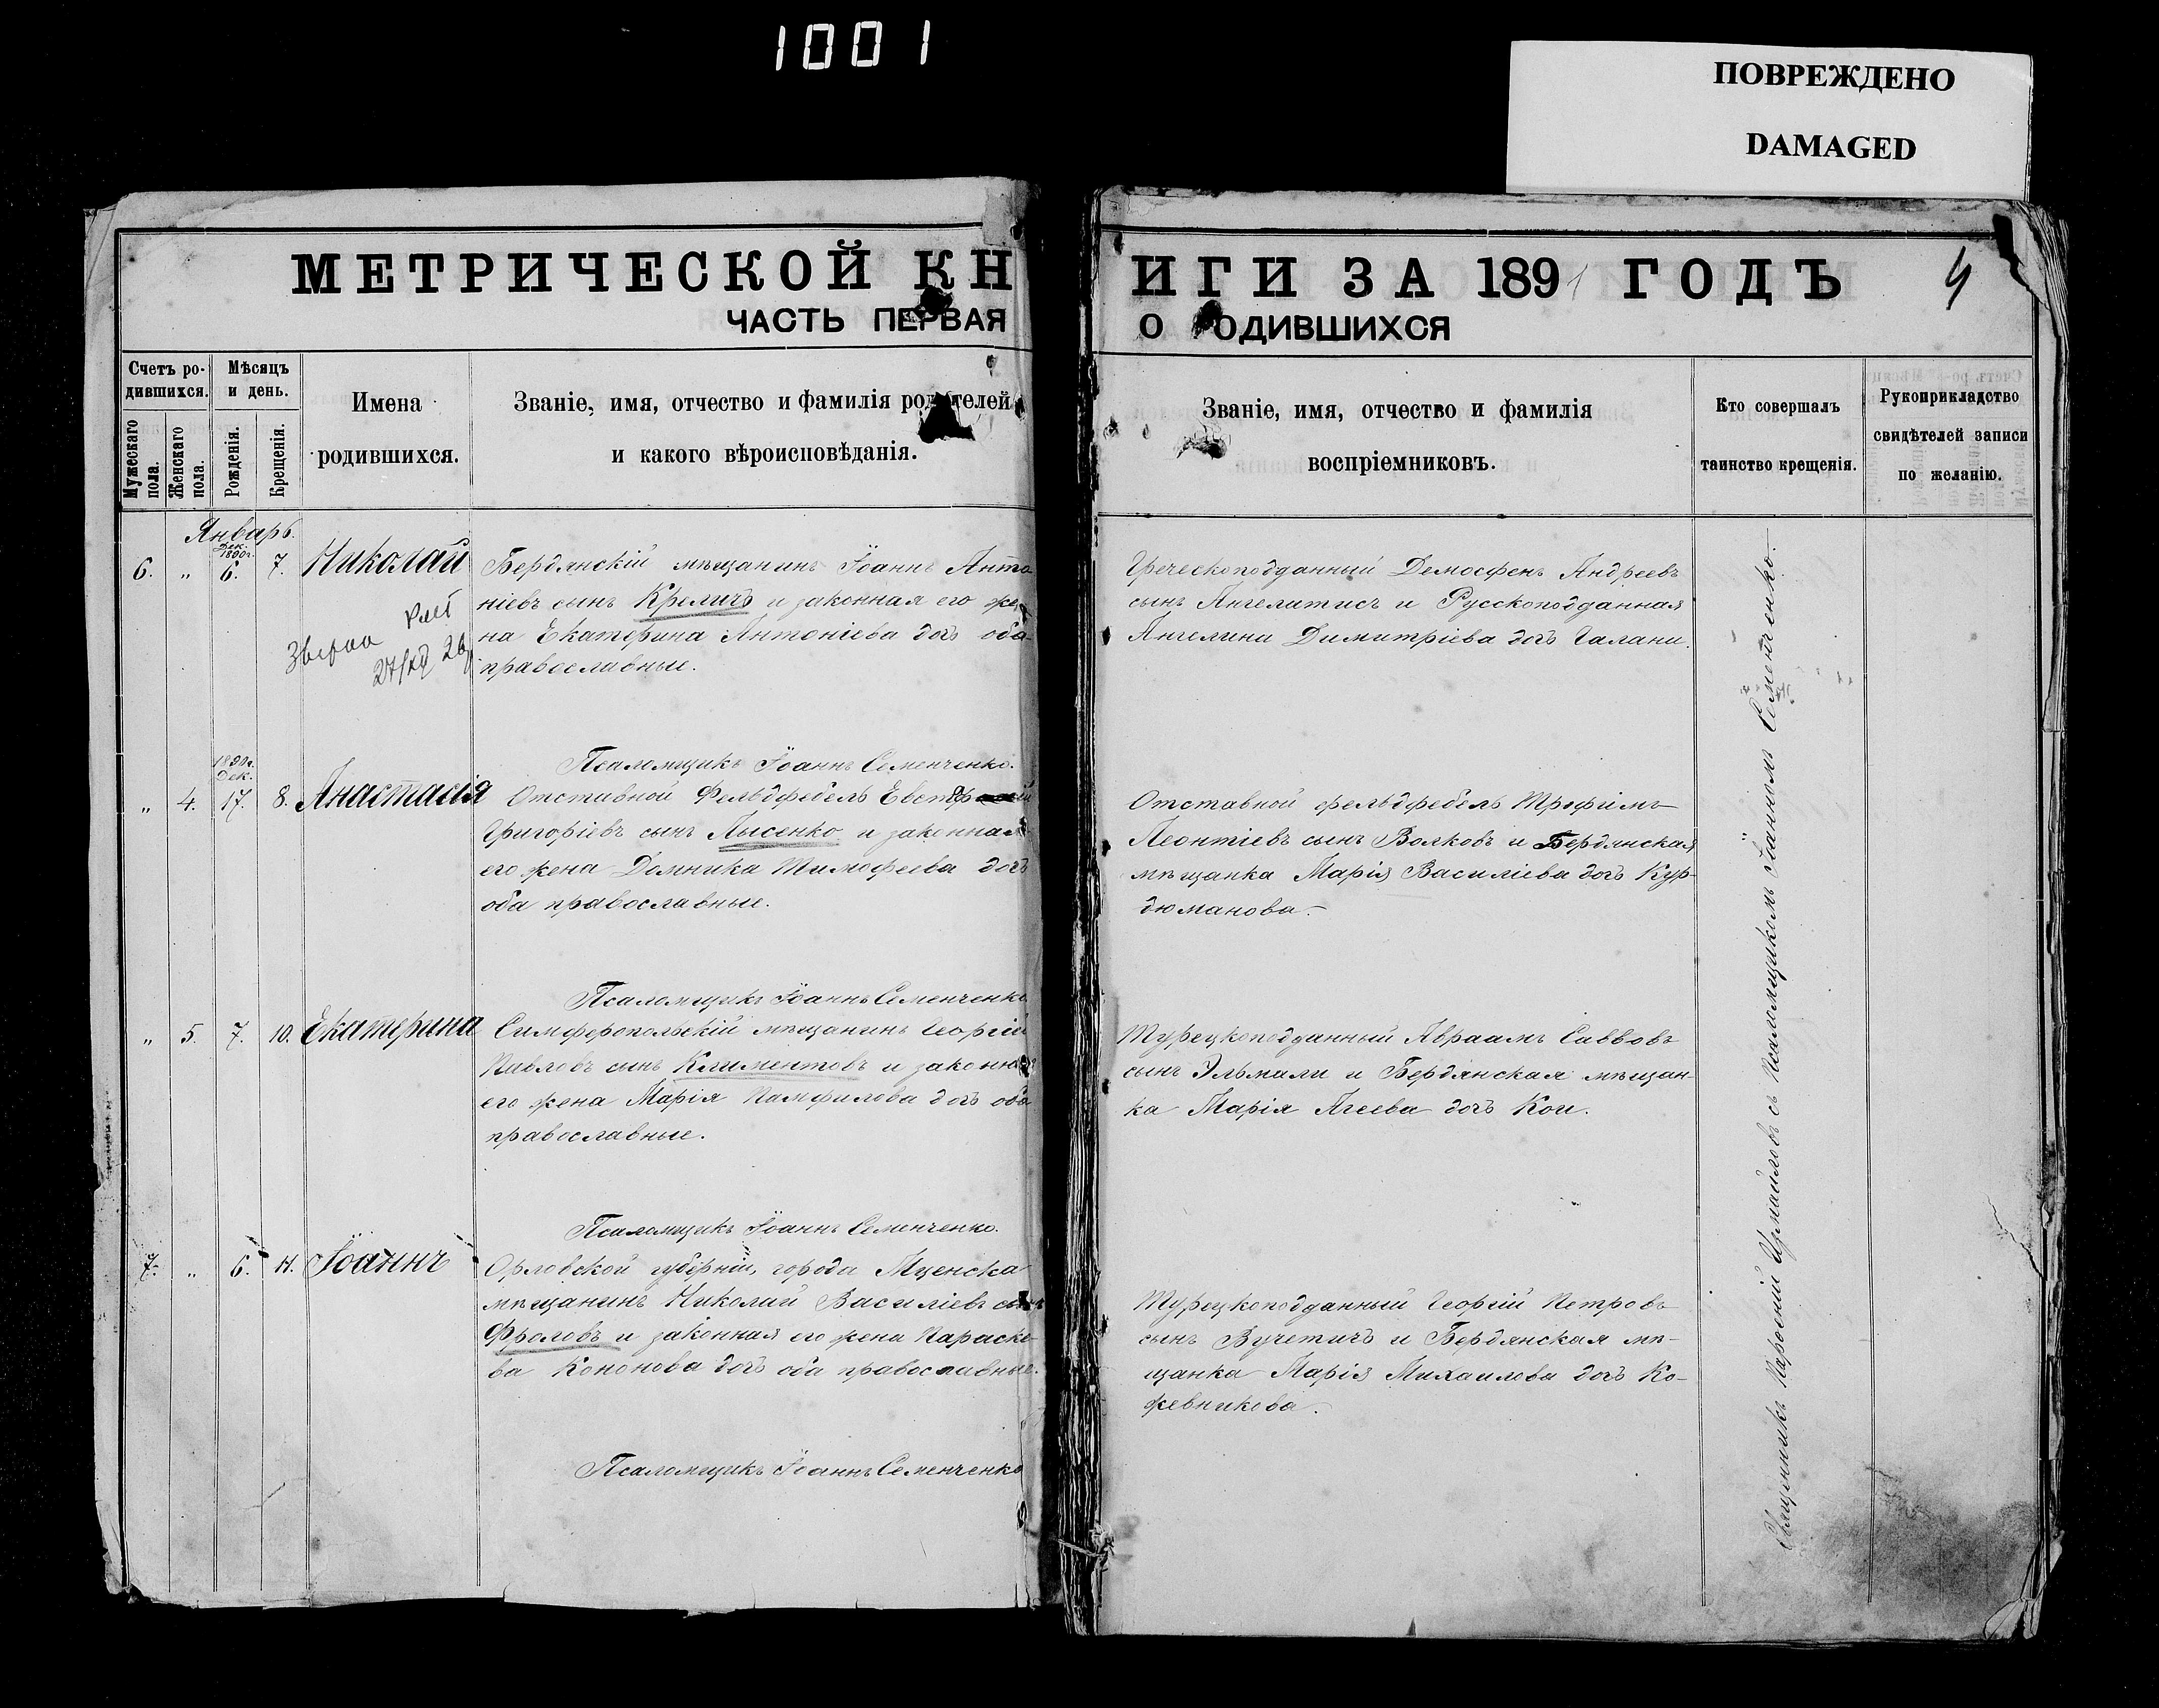 1001
ПОВРЕЖДЕНО
DAMAGED
МЕТРИЧЕСКОЙ КН
ИГИ ЗА 1891 ГОДЪ
4
ЧАСТЬ ПЕРВАЯ
О РОДИВШИХСЯ
Счетъ ро-
дившихся.
Мужескаго пола.
Женскаго пола.
Мѣсяцъ
и день.
Рожденія.
Крещенія.
Имена
родившихся.
Званіе, имя, отчество и фамилія родителей
и какого вѣроисповѣданія.
Званіе, имя, отчество и фамилія
воспріемниковъ.
Кто совершалъ
таинство крещенія.
Рукоприкладство
свидѣтелей записи
по желанію.
Январь.
Дек.
1890г.
6. „ 6. 7. Николай Бердянскій мѣщанинъ Іоаннъ Анто
ніевъ сынъ Креличъ и законная его же
на Екатерина Антоніева дочь оба
православные.
27/XII 26
Греческоподданный Демосфенъ Андреевъ
сынъ Ангелатисъ и Русскоподданная
Ангелина Димитріева дочь Галани.
Псаломщикъ Іоаннъ Семенченко.
1890г.
Дек.
„ 4. 17. 8. Анастасія Отставной Фельдфебель
Григоріевъ сынъ Лысенко и законная
его жена Домника Тимофеева дочь
оба православные.
Отставной фельдфебель Трофимъ
Леонтіевъ сынъ Волковъ и Бердянская
мѣщанка Марія Василіева дочь Кур-
дюманова.
Псаломщикъ Іоаннъ Семенченко
„ 5. 7. 10. Екатерина Симферопольскій мѣщанинъ Георгій
Павловъ сынъ Климентовъ и законная
его жена Марія Памфилова дочь оба
православные.
Турецкоподданный Авраамъ Саввовъ
сынъ Эльмали и Бердянская мѣщан-
ка Марія Агеева дочь Кои.
Псаломщикъ Іоаннъ Семенченко.
7. „ 6. 11. Іоаннъ Орловской губерніи, города Мценска
мѣщанинъ Николай Василіевъ сынъ
Фроловъ и законная его жена Параске-
ва Кононова дочь оба православные.
Турецкоподданный Георгій Петровъ
сынъ Вучетичъ и Бердянская мѣ-
щанка Марія Михаилова дочь Ко-
жевникова.
Псаломщикъ Іоаннъ Семенченко
Священникъ Измайловъ съ Псаломщикомъ Іоанномъ Семенченко.